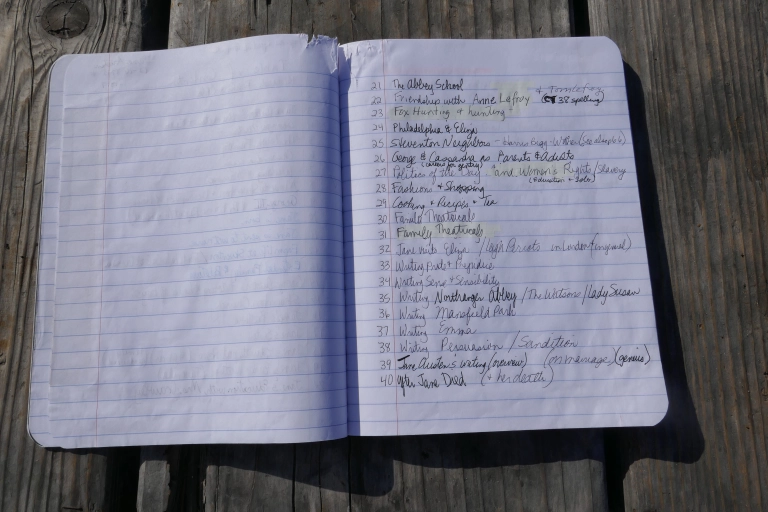 21 The Abbey School
22 Friendship with Anne Lefroy & Tom Lefroy (38 spelling)
23 Fox Hunting & hunting
24 Philadelphia & Eliza
25 Steventon Neighbors - Harris Bigg-Wither (see also
26 George & Cassandra as Parents & Adults
(careers for gentry)
27 Politics of the Day and Women's Rights/Slavery
(Education + Jobs)
28 Fashions & Shopping
29 Cooking + Recipes + Tea
30 Family Theatricals
31 Family Theatricals
32 Jane visits Eliza / Leigh Perrots in London
33 Writing Pride + Prejudice
34 Writing Sense + Sensibility
35 Writing Northanger Abbey / The Watsons / Lady Susan
36 Writing Mansfield Park
37 Writing Emma
38 Writing Persuasion / Sandition
39 Jane Austen's writing (overview) (on marriage) (genius)
40 after Jane Died (+ her death)